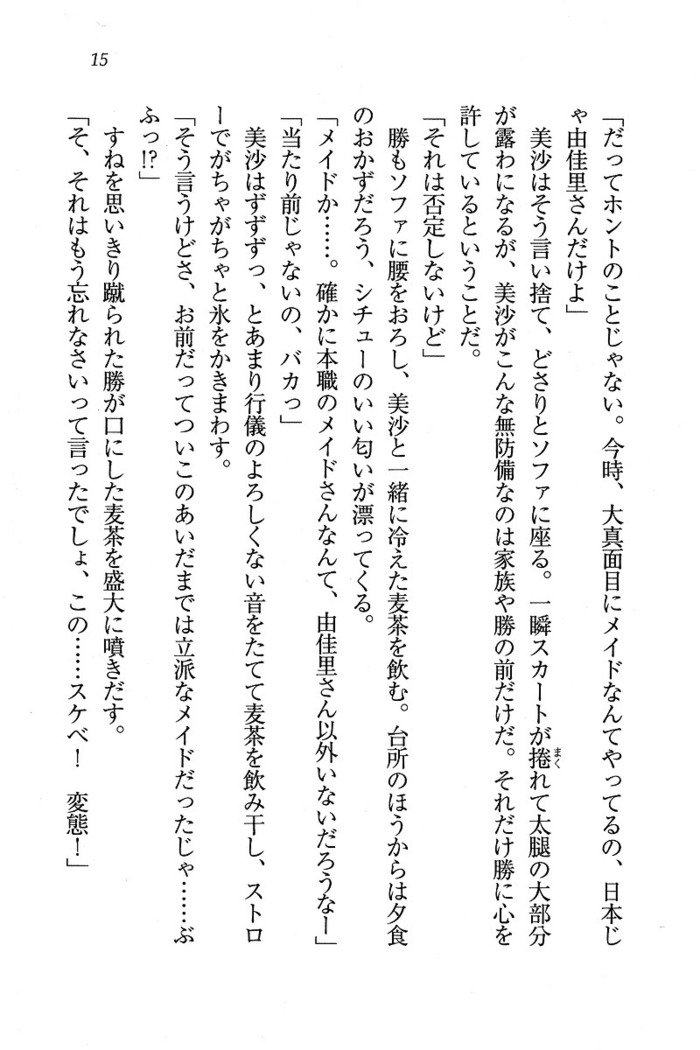 15
「だってホントのことじゃない。今時、大真面目にメイドなんてやってるの、日本じ
ゃ由佳里さんだけよ」
　美沙はそう言い捨て、どさりとソファに座る。一瞬スカートが捲れて太腿の大部分
まく
が露わになるが、美沙がこんな無防備なのは家族や勝の前だけだ。それだけ勝に心を
許しているということだ。
「それは否定しないけど」
　勝もソファに腰をおろし、美沙と一緒に冷えた麦茶を飲む。台所のほうからは夕食
のおかずだろう、シチューのいい匂いが漂ってくる。
「メイドか……。確かに本職のメイドさんなんて、由佳里さん以外いないだろうなー」
「当たり前じゃないの、バカっ」
　美沙はずずずっ、とあまり行儀のよろしくない音をたてて麦茶を飲み干し、ストロ
ーでがちゃがちゃと氷をかきまわす。
「そう言うけどさ、お前だってついこのあいだまでは立派なメイドだったじゃ……ぶ
ふっ!?」
　すねを思いきり蹴られた勝が口にした麦茶を盛大に噴きだす。
「そ、それはもう忘れなさいって言ったでしょ、この……スケベ！　変態！」